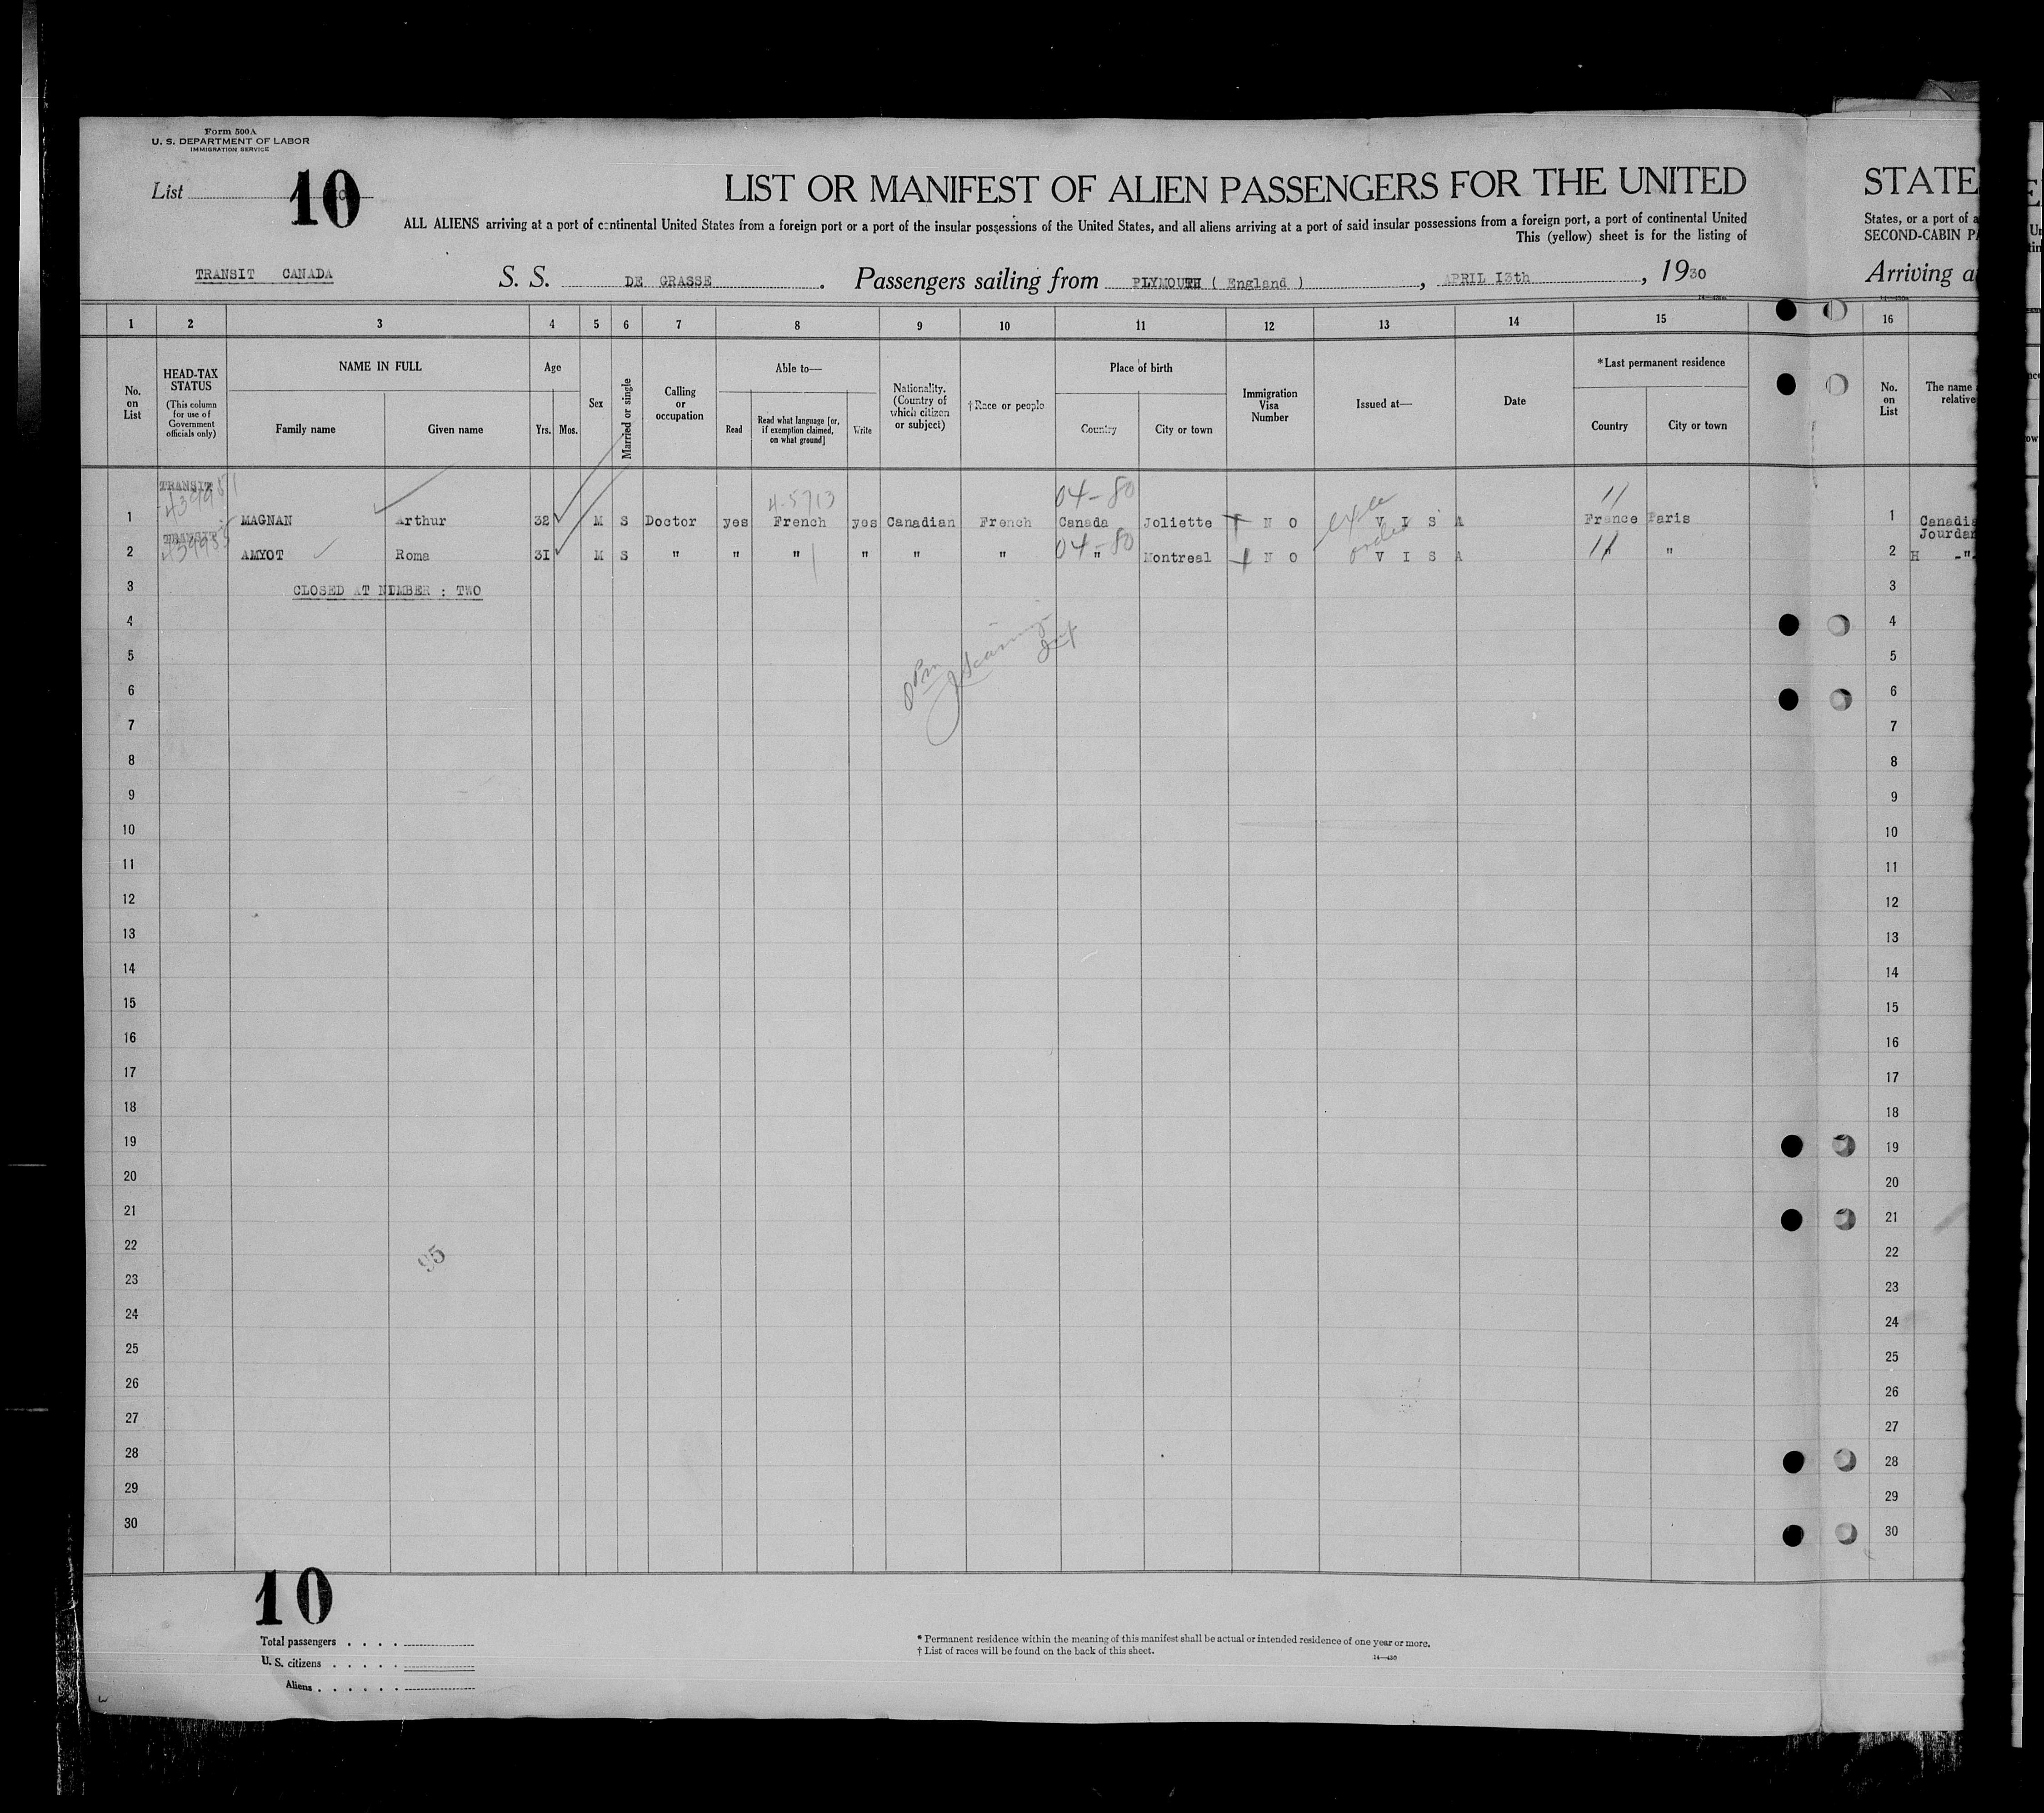 Form 500A
U. S. DEPARTMENT OF LABOR
IMMIGRATION SERVICE
List 10
LIST OR MANIFEST OF ALIEN PASSENGERS FOR THE UNITED
STATE
ALL ALIENS arriving at a port of continental United States from a foreign port or a port of the insular possessions of the United States, and all aliens arriving at a port of said insular possessions from a foreign port, a port of continental United
States, or a port of a
This (yellow) sheet is for the listing of
SECOND-CABIN PA
TRANSIT CANADA
S. S. DE GRASSE. Passengers sailing from PLYMOUTH ( England ), APRIL 13th, 1930
Arriving a
1 2 3 4 5 6 7 8 9 10 11 12 13 14 15 16
No. on List
HEAD-TAX STATUS
(This column for use of Government officials only)
NAME IN FULL
Family name Given name
Age
Yrs. Mos.
Sex
Married or single
Calling or occupation
Able to—
Read
Read what language [or, if exemption claimed, on what ground]
Write
Nationality. (Country of which citizen or subject)
† Race or people
Place of birth
Country City or town
Immigration Visa Number
Issued at—
Date
*Last permanent residence
Country City or town
No. on List
The name
relative
TRANSIT
4-5713
04-80
1 MAGNAN Arthur 32 M S Doctor yes French yes Canadian French Canada Joliette NO VISA France Paris 1 Canadia
TRANSIT
Jourdan
04-80
2 AMYOT Roma 31 M S " " " " " " " Montreal NO VISA " 2 H -"-
3 CLOSED AT NUMBER : TWO 3
4 4
5 5
6 6
7 7
8 8
9 9
10 10
11 11
12 12
13 13
14 14
15 15
16 16
17 17
18 18
19 19
20 20
21 21
22 22
95
23 23
24 24
25 25
26 26
27 27
28 28
29 29
30 30
10
Total passengers . . . .
U. S. citizens . . . . .
Aliens . . . . . .
* Permanent residence within the meaning of this manifest shall be actual or intended residence of one year or more.
† List of races will be found on the back of this sheet.
14—430